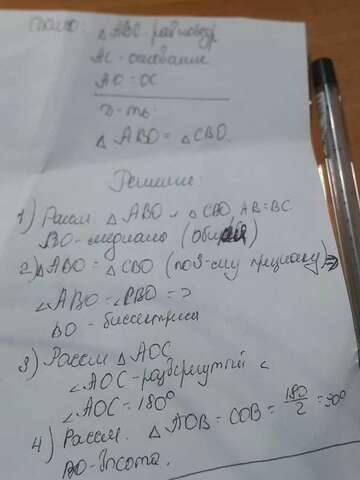 Дано: △ ABC - равнобедр
AC - основание
AO = OC
Д-ть:
△ ABO = △ CBO.
Решение:
1) Рассм △ ABO и △ CBO, AB = BC.
BO - медиана (общая)
2) △ ABO = △ CBO (по 3-ему признаку) ⇒
∠ABO = ∠CBO ⇒
BO - биссектриса
3) Рассм △ AOC
∠AOC - развёрнутый ∠
∠AOC = 180°
4) Рассм. △ AOB - COB = 180/2 = 90°
BO - высота.